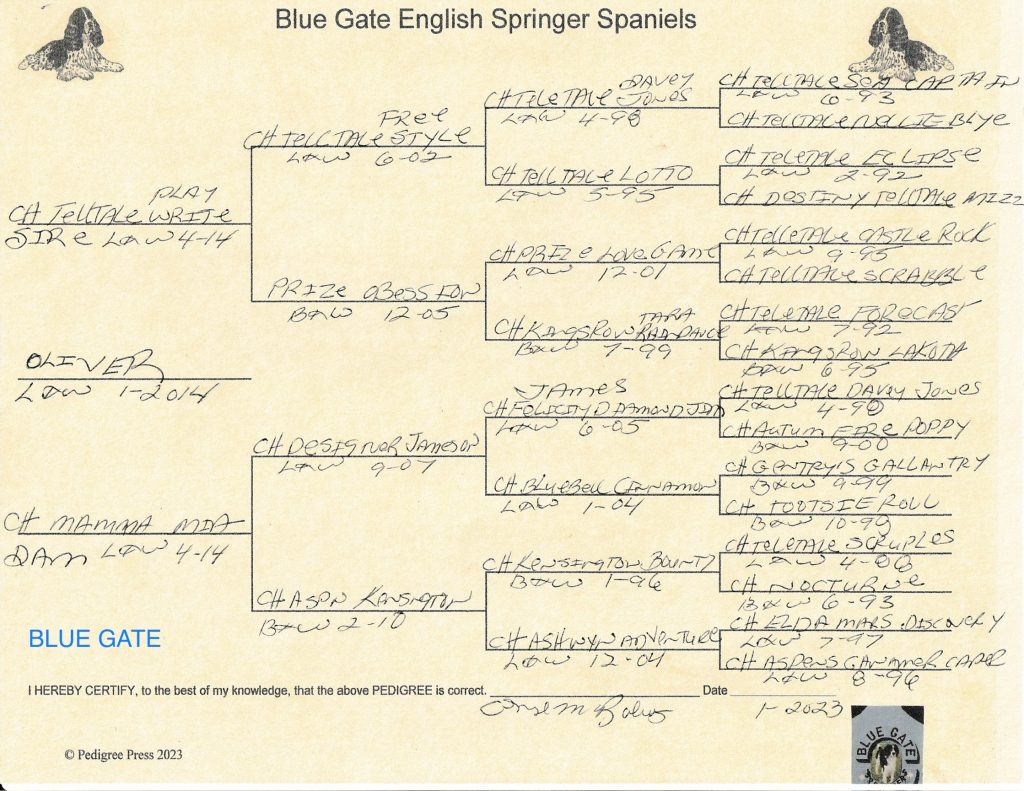 Blue Gate English Springer Spaniels
PLAY
CH TELLTALE WRITE
SIRE L&W 4-14
OLIVER
L&W 1-2014
CH MAMMA MIA
DAM L&W 4-14
FREE
CH TELLTALE STYLE
L&W 6-02
PRIZE OBESSION
B&W 12-05
CH DESIGNER JAMESON
L&W 9-07
CH ASPN KENSINGTON
B&W 2-10
DAVEY
CH TELETALE JONES
L&W 4-90
CH TELLTALE LOTTO
L&W 5-95
CH PRIZE LOVE GAME
L&W 12-01
TARA
CH KINGSROW RAINDANCE
B&W 7-99
JAMES
CH FELICITY DIAMOND JIM
L&W 6-05
CH BLUEBELL CINNAMON
L&W 1-04
CH KENSINGTON BOUNTY
B&W 1-96
CH ASHWYN ADVENTURE
L&W 12-04
CH TELLTALE SEA CAPTAIN
L&W 6-93
CH TELLTALE NELLIE BLYE
CH TELETALE ECLIPSE
L&W 2-92
CH DESTINY TELLTALE MIZZ
CH TELLETALE CASTLE ROCK
L&W 9-95
CH TELLTALE SCRABBLE
CH TELETALE FORECAST
L&W 7-92
CH KINGSROW LAKOTA
B&W 6-95
CH TELLTALE DAVEY JONES
L&W 4-90
CH AUTUM FIRE POPPY
B&W 9-00
CH GENTRY'S GALLANTRY
B&W 9-99
CH TOOTSIE ROLL
B&W 10-99
CH TELETALE SCRUPLES
L&W 4-88
CH NOCTURNE
B&W 6-93
CH ELDA MARS DISCOVERY
L&W 7-97
CH ASPENS CAPER
L&W 8-96
BLUE GATE
I HEREBY CERTIFY, to the best of my knowledge, that the above PEDIGREE is correct. Date
1-2023
© Pedigree Press 2023
BLUE GATE